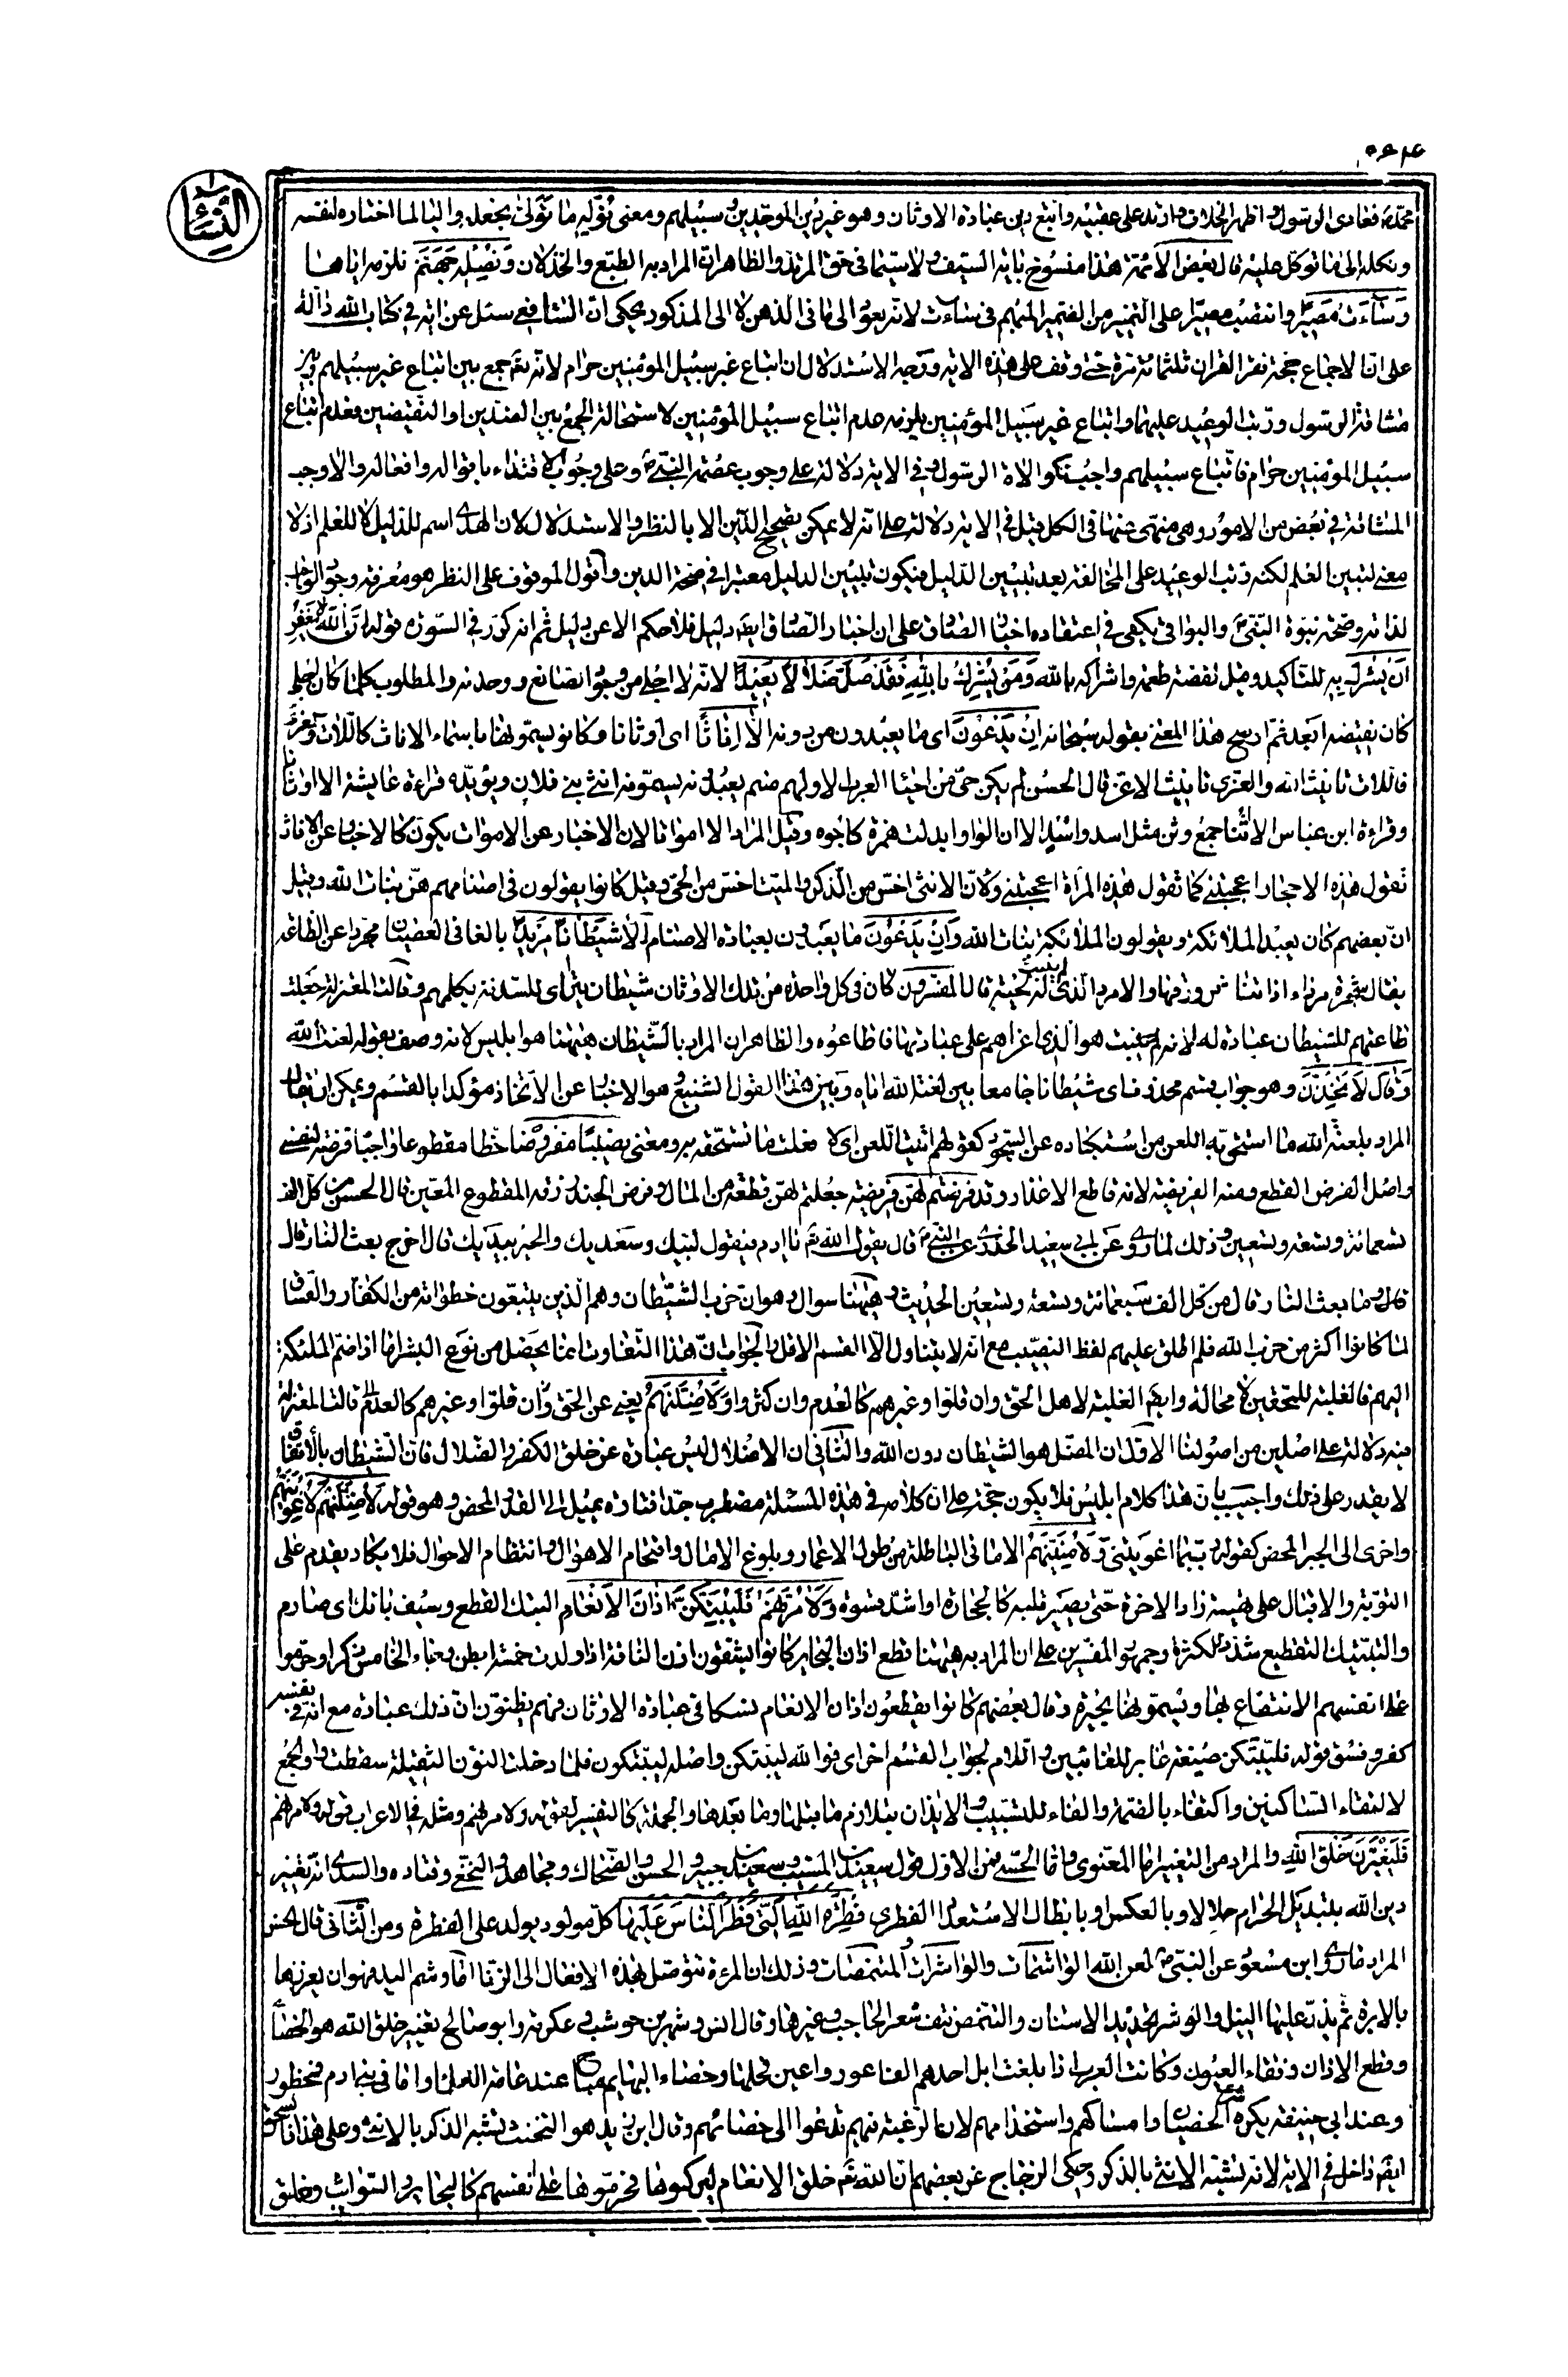 النساء
محمد ص فعادى الرسول و اظهر الخلاف و ارتد على عقبيه واتبع دين عبادة الاوثان وهو غير دين الموحدين و سبيلهم ومعنى نوله ما تولى نجعله واليا لما اختاره لنفسه
ونكله الى ما توكل عليه قال بعض الائمة هذا منسوخ باية السيف ولا سيما في حق المرتد والظاهر ان المراد به الطبع والخذلان ونصله جهنم نلزمه اياها
وساءت مصيرا وانتصب مصيرا على التميز من الضمير المبهم في ساءت لانه يعود الى ما في الذهن لا الى المذكور يحكى ان الشافعي سئل عن اية في كتاب الله دالة
على ان الاجماع حجة فقرا القران ثلثمائة مرة حتى وقف على هذه الاية ووجه الاستدلال ان اتباع غير سبيل المؤمنين حرام لانه تعم جمع بين اتباع غير سبيلهم وبين
مشاقة الرسول ورتب الوعيد عليهما واتباع غير سبيل المؤمنين يلزمه عدم اتباع سبيل المؤمنين لاستحالة الجمع بين الضدين او النقيضين فعدم اتباع
سبيل المؤمنين حرام فاتباع سبيلهم واجب كموالاة الرسول وفي الاية دلالة على وجوب عصمة النبي ص وعلى وجوب الاقتداء باقواله وافعاله والا وجب
المشاقة في بعض من الامور وهي منهى عنها في الكل قيل في الاية دلالة على انه لا يمكن تصحيح الدين الا بالنظر والاستدلال لان الهدى اسم للدليل لا للعلم اذ لا
معنى لتبين العلم لكنه رتب الوعيد على المخالفة بعد تبيين الدليل فيكون تبيين الدليل معتبرا في صحة الدين واقول الموقوف على النظر هو معرفة وجود الواجب
لذاته وصحة نبوة النبي ص والبواقي يكفي في اعتقاده اخبار الصادق على ان اخبار الصادق ايضا دليل فلا حكم الا عن دليل ثم انه كرر في السورة قوله ان الله لا يغفر
ان يشرك به للتاكيد وقيل لقصة طعمة واشراكه بالله ومن يشرك بالله فقد ضل ضلالا بعيدا لانه لا اجلى من وجود الصانع ووحدته والمطلوب كلما كان اجلى
كان نقيضه ابعد ثم اوضح هذا المعنى بقوله سبحانه ان يدعون اى ما يعبدون من دونه الا اناثا اى اوثانا وكانوا يسمونها باسماء الاناث كاللات والعزى
فاللات تانيث الله والعزى تانيث الاعز قال الحسن لم يكن حى من احياء العرب الا ولهم صنم يعبدونه يسمونه انثى بنى فلان ويؤيده قراءة عايشة الا اوثانا
وقراءة ابن عباس الا اثنا جمع وثن مثل اسد واسد الا ان الواو ابدلت همزة كاجوه وقيل المراد الا امواتا لان الاخبار عن الاموات يكون كالاخبار عن الاناث
تقول هذه الاحجار اعجبتنى كما تقول هذه المراة اعجبتنى ولان الانثى اخس من الذكر والميت اخس من الحى وقيل كانوا يقولون في اصنامهم هن بنات الله وقيل
ان بعضهم كان يعبد الملائكة ويقولون الملائكة بنات الله وان يدعون ما يعبدون بعبادة الاصنام الا شيطانا مريدا بالغا في العصيان مجردا عن الطاعة
يقال شجرة مرداء اذا تناثر ورقها والامرد الذى لم ينبت له لحية قال المفسرون كان في كل واحدة من تلك الاوثان شيطان يتراى للسدنة يكلمهم وقالت المعتزلة جعلت
طاعتهم للشيطان عبادة له لانه ابليس حيث هو الذى اغراهم على عبادتها فاطاعوه والظاهر ان المراد بالشيطان ههنا هو ابليس لانه وصف بقوله لعنه الله
وقال لاتخذن وهو جواب قسم محذوف اى شيطانا جامعا بين لعنة الله اياه وبين هذا القول الشنيع وهو الاخبار عن الاتخاذ مؤكدا بالقسم ويمكن ان يقال
المراد بلعنة الله ما استحق به اللعن من استكباره عن السجود كقولهم ابيت اللعن اى لا فعلت ما تستحقه به ومعنى نصيبا مفروضا حظا مقطوعا واجبا فرضته لنفسى
واصل الفرض القطع ومنه الفريضة لانه قاطع الاعذار وقد فرضتم لهن فريضة جعلتم لهن قطعة من المال وفرض الجند رزقه المقطوع المعين قال الحسن من كل الف
تسعمائة وتسعة وتسعين وذلك لما روى عن ابي سعيد الخدرى عن النبي ص قال يقول الله تعم يا ادم فيقول لبيك وسعديك والخير بيديك قال اخرج بعث النار قال
قال وما بعث النار قال من كل الف تسعمائة وتسعة وتسعين الحديث وههنا سوال وهو ان حزب الشيطان وهم الذين يتبعون خطواته من الكفار والفساق
لما كانوا اكثر من حزب الله فلم اطلق عليهم لفظ النصيب مع انه لا يتناول الا القسم الاقل والجواب ان هذا التفاوت انما يحصل من نوع البشر اما اذا ضم الملئكة
اليهم فالغلبة للمحقين لا محالة وايضا الغلبة لاهل الحق وان قلوا وغيرهم كالعدم وان كثروا ولاضلنهم يعنى عن الحق وان قلوا وغيرهم كالعدم قالت المعتزلة
فيه دلالة على اصلين من اصولنا الاول ان المضل هو الشيطان دون الله والثاني ان الاضلال ليس عبارة عن خلق الكفر والضلال فان الشيطان بالاتفاق
لا يقدر على ذلك واجيب بان هذا كلام ابليس فلا يكون حجة على ان كلامه في هذه المسئلة مضطرب جدا فتارة يميل الى القدر المحض وهو قوله لاضلنهم لاغوينهم
واخرى الى الجبر المحض كقوله رب بما اغويتنى ولامنينهم الامانى الباطلة من طول الاعمار وبلوغ الامال واقتحام الاهوال وانتظام الاحوال فلا يكاد يقدم على
التوبة والاقبال على تهيئة زاد الاخرة حتى يصير قلبه كالحجارة او اشد قسوة ولامرنهم فليبتكن اذان الانعام البتك القطع وسيف باتك اى صارم
والتبتيك التقطيع شدد للكثرة وجمهور المفسرين على ان المراد به ههنا قطع اذان البحاير كانوا يشقون اذن الناقة اذا ولدت خمسة ابطن وجاء الخامس ذكرا وحرموا
على انفسهم الانتفاع بها ويسمونها بحيرة وقال بعضهم كانوا يقطعون اذان الانعام نسكا في عبادة الاوثان فهم يظنون ان ذلك عبادة مع انه في نفسه
كفر وفسق قوله فليبتكن صيغة غابر للغائبين واللام لجواب القسم اخرى فوالله ليبتكن واصله ليبتكون فلما دخلت النون الثقيلة سقطت واو الجمع
لالتقاء الساكنين واكتفاء بالضمة والفاء للتسبيب والايذان بتلازم ما قبلها وما بعدها والجملة كالتفسير لقوله ولامرنهم ومثله في الاعراب قوله ولامرنهم
فليغيرن خلق الله والمراد من التغيير اما المعنوى واما الحسى فمن الاول قول سعيد بن المسيب وسعيد بن جبير والحسن والضحاك ومجاهد والنخعى وقتاده والسدى انه تغيير
دين الله بتبديل الحرام حلالا وبالعكس او بابطال الاستعداد الفطرى فطرة الله التى فطر الناس عليها كل مولود يولد على الفطرة ومن الثانى قال الحسن
المراد ما روى ابن مسعود عن النبي ص لعن الله الواشمات والواشرات والمتنمصات وذلك ان المرءة تتوصل بهذه الافعال الى الزنا اما وشم اليد فهو ان يغرزها
بالابرة ثم يذر عليها النيل والوشر تحديد الاسنان والتنمص نتف شعر الحاجب وغيرها وقال انس وشهر بن حوشب وعكرمة وابو صالح تغيير خلق الله هو الخصاء
وقطع الاذان وفقاء العيون وكانت العرب اذا بلغت ابل احدهم الفا عوروا عين فحلها وخصاء البهايم مباح عند عامة العلماء واما في بنى ادم فمحظور
وعند ابي حنيفة يكره شرى الخصيان وامساكهم واستخدامهم لان الرغبة فيهم تدعوا الى خصائهم وقال ابن زيد هو التخنث تشبه الذكر بالانثى وعلى هذا فالسحق
ايضا داخل في الاية لانه تشبه الانثى بالذكر وحكى الزجاج عن بعضهم ان الله تعم خلق الانعام ليركبوها فحرموها على انفسهم كالبحاير والسوائب وخلق